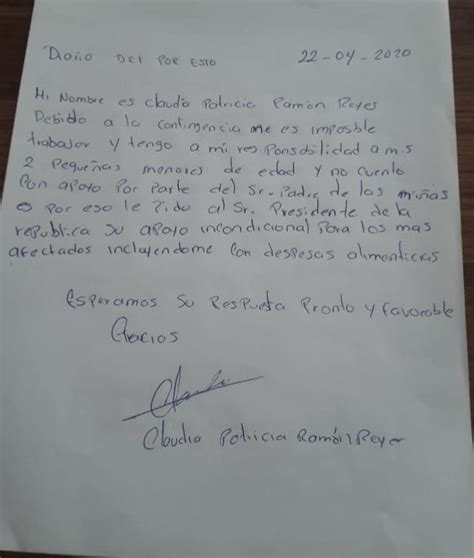 Diario DEL POR ESTO 22-04-2020
Mi Nombre es claudia Patricia Ramón Reyes
Debido a la contingencia me es imposble
trabajar y tengo a mi responsbilidad a mis
2 Pequeñas menores de edad y no cuento
con apoyo Por Parte del Sr. Padre de las niñas
Por eso le Pido al Sr. Presidente de la
republica su apoyo incondicional Para los mas
afectados incluyendome con despesas alimenticias
Esperamos Su Respueta Pronto y favorable
Gracias
Claudia Patricia Ramón Reyes